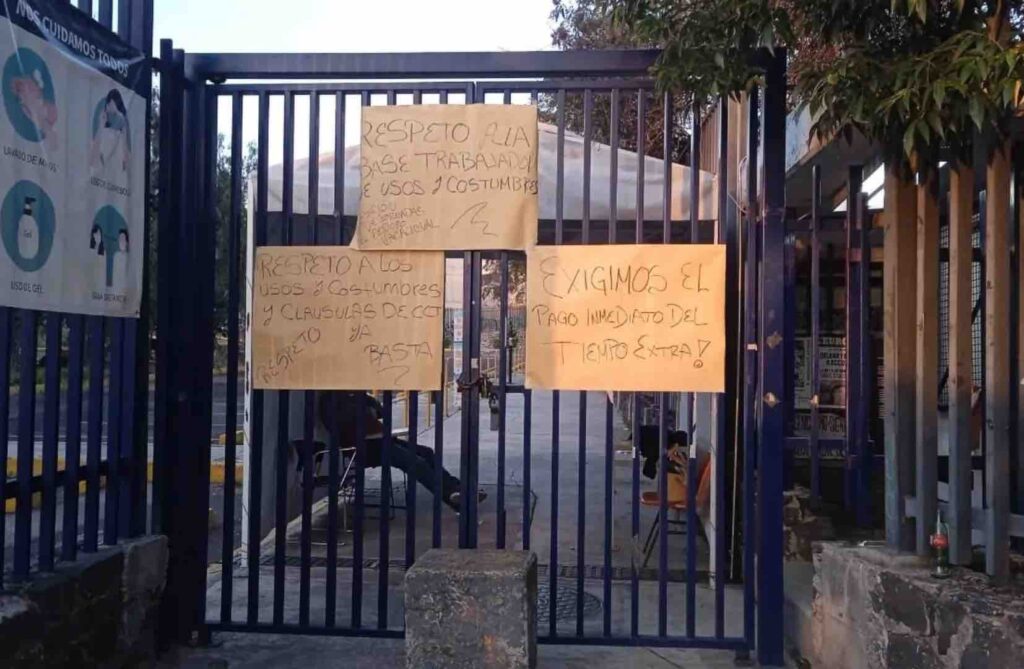 NOS CUIDAMOS TODOS
LAVADO DE MANOS
USO DE GEL
SANA DISTANCIA
RESPETO A LA
BASE TRABAJADOR
E USOS Y COSTUMBRES
RESPETO A LOS
USOS Y COSTUMBRES
Y CLAUSULAS DE CCT
RESPETO YA
BASTA
EXIGIMOS EL
PAGO INMEDIATO DEL
TIEMPO EXTRA!